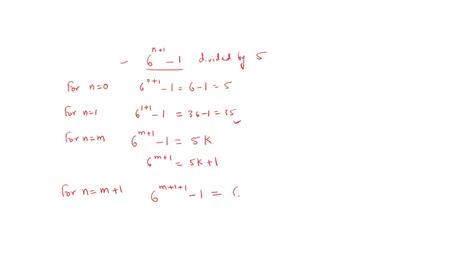 - 6^{n+1} - 1 divided by 5
For n=0 6^{n+1} - 1 = 6-1 = 5
For n=1 6^{1+1} - 1 = 36-1 = 35
For n=m 6^{m+1} - 1 = 5K
6^{m+1} = 5K+1
For n=m+1 6^{m+1+1} - 1 =